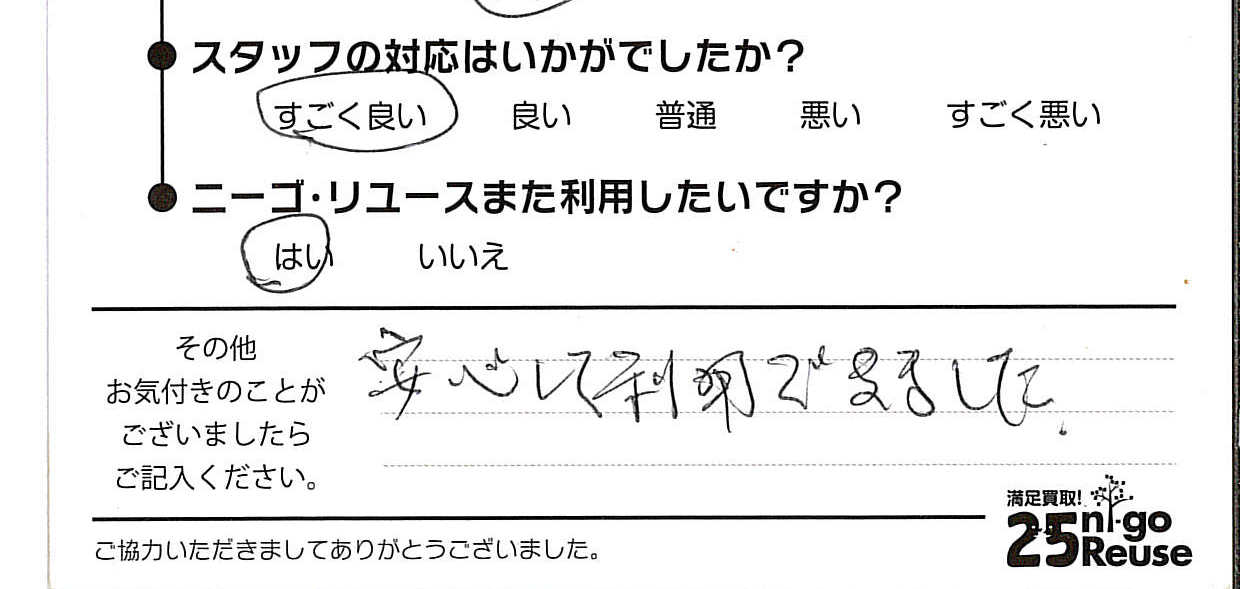 ●スタッフの対応はいかがでしたか?
すごく良い 良い 普通 悪い すごく悪い
●ニーゴ・リユースまた利用したいですか?
はい いいえ
その他
お気付きのことが
ございましたら
ご記入ください。
安心して利用できました.
満足買取!
25 ni-go
Reuse
ご協力いただきましてありがとうございました。